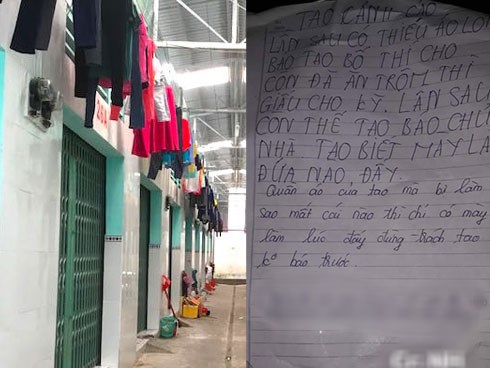 TAO CẢNH CÁO
LẦN SAU CÓ THIẾU ÁO LÓT
BẢO TAO BỐ THÍ CHO
CÒN ĐÃ ĂN TRỘM THÌ
GIẤU CHO KỸ. LẦN SAU
CÒN THẾ TAO BÁO CHỦ
NHÀ TAO BIẾT MÀY LÀ
ĐỨA NÀO ĐẤY.
Quần áo của tao mà bị làm
sao mất cái nào thì chỉ có mày
làm lúc đấy đừng trách tao
ko báo trước.